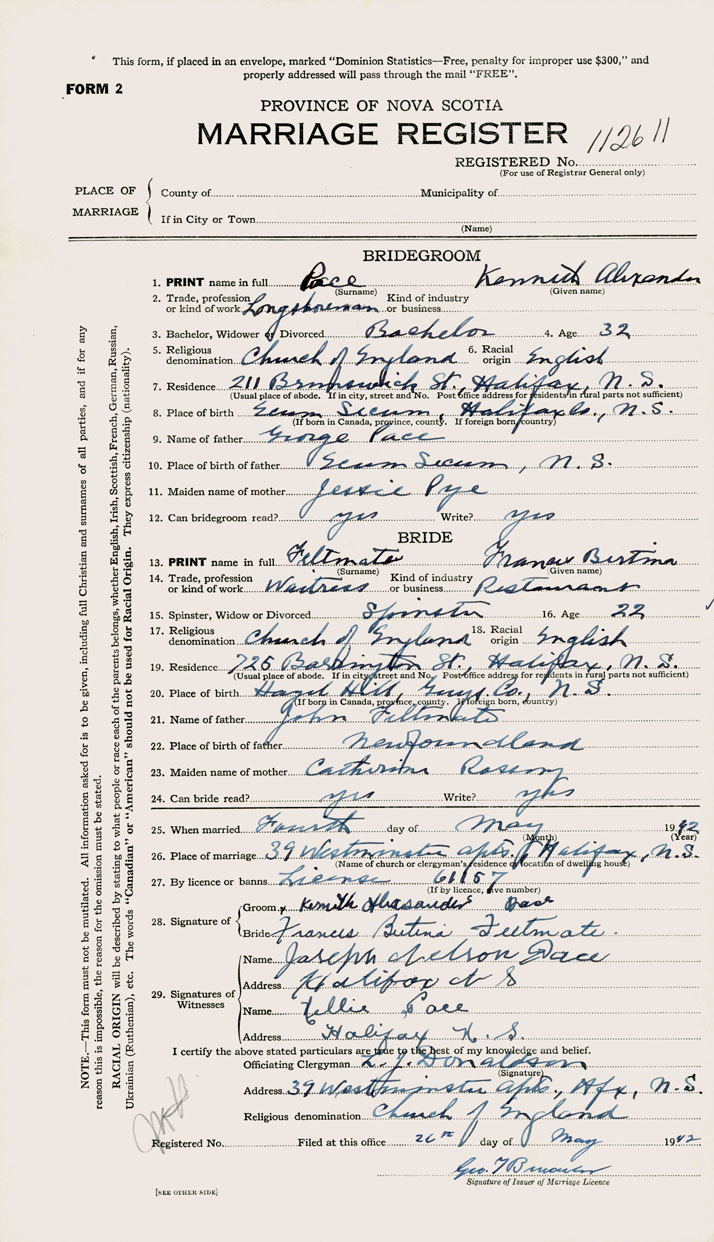 This form, if placed in an envelope, marked "Dominion Statistics—Free, penalty for improper use $300," and
properly addressed will pass through the mail "FREE".
FORM 2
PROVINCE OF NOVA SCOTIA
MARRIAGE REGISTER
112611
REGISTERED No.
(For use of Registrar General only)
PLACE OF MARRIAGE
County of Municipality of
If in City or Town
(Name)
BRIDEGROOM
1. PRINT name in full Pace Kenneth Alexander
(Surname) (Given name)
2. Trade, profession or kind of work Longshoreman Kind of industry or business
3. Bachelor, Widower or Divorced Bachelor 4. Age 32
5. Religious denomination Church of England 6. Racial origin English
7. Residence 211 Brunswick St., Halifax, N. S.
(Usual place of abode. If in city, street and No. Post office address for residents in rural parts not sufficient)
8. Place of birth Ecum Secum, Halifax Co., N. S.
(If born in Canada, province, county. If foreign born, country)
9. Name of father George Pace
10. Place of birth of father Ecum Secum, N. S.
11. Maiden name of mother Jessie Pye
12. Can bridegroom read? yes Write? yes
BRIDE
13. PRINT name in full Feltmate Francis Bertina
(Surname) (Given name)
14. Trade, profession or kind of work Waitress Kind of industry or business Restaurant
15. Spinster, Widow or Divorced Spinster 16. Age 22
17. Religious denomination Church of England 18. Racial origin English
19. Residence 725 Barrington St., Halifax, N. S.
(Usual place of abode. If in city, street and No. Post office address for residents in rural parts not sufficient)
20. Place of birth Hazel Hill, Guys. Co., N. S.
(If born in Canada, province, county. If foreign born, country)
21. Name of father John Feltmate
22. Place of birth of father Newfoundland
23. Maiden name of mother Catherine
24. Can bride read? yes Write? yes
25. When married Fourth day of May 1942
(Month) (Year)
26. Place of marriage 39 Westminster Apts., Halifax, N. S.
(Name of church or clergyman's residence or location of dwelling house)
27. By licence or banns License 61157
(If by licence, give number)
28. Signature of
Groom Kenneth Alexander Pace
Bride Francis Bertina Feltmate.
29. Signatures of Witnesses
Name Joseph Nelson Pace
Address Halifax N S
Name Nellie Pace
Address Halifax N. S.
I certify the above stated particulars are true to the best of my knowledge and belief.
Officiating Clergyman L. J. Donaldson
(Signature)
Address 39 Westminster Apts., Hfx, N. S.
Religious denomination Church of England
Registered No. Filed at this office 26th day of May 1942
Geo. F.
Signature of Issuer of Marriage Licence
[SEE OTHER SIDE]
NOTE.—This form must not be mutilated. All information asked for is to be given, including full Christian and surnames of all parties, and if for any
reason this is impossible, the reason for the omission must be stated.
RACIAL ORIGIN will be described by stating to what people or race each of the parents belongs, whether English, Irish, Scottish, French, German, Russian,
Ukrainian (Ruthenian), etc. The words "Canadian" or "American" should not be used for Racial Origin. They express citizenship (nationality).